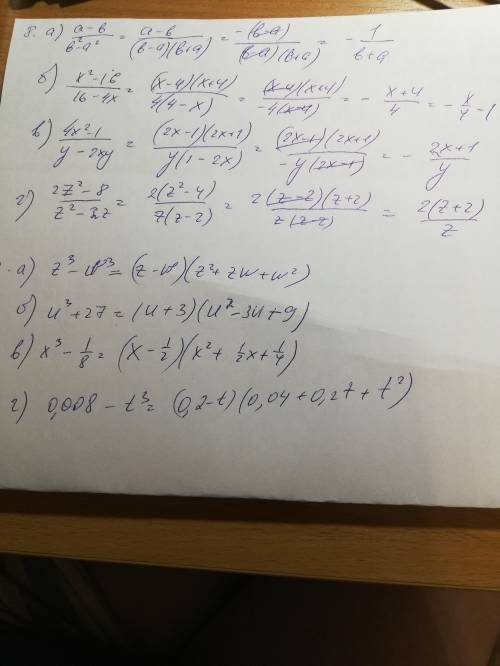 8. а) (a-b)/(b²-a²) = (a-b)/((b-a)(b+a)) = -(b-a)/((b-a)(b+a)) = - 1/(b+a)
б) (x²-16)/(16-4x) = ((x-4)(x+4))/(4(4-x)) = ((x-4)(x+4))/(-4(x-4)) = - (x+4)/4 = - x/4 - 1
в) (4x²-1)/(y-2xy) = ((2x-1)(2x+1))/(y(1-2x)) = ((2x-1)(2x+1))/(-y(2x-1)) = - (2x+1)/y
г) (2z²-8)/(z²-2z) = (2(z²-4))/(z(z-2)) = (2(z-2)(z+2))/(z(z-2)) = (2(z+2))/z
. а) z³ - w³ = (z-w)(z²+zw+w²)
б) u³ + 27 = (u+3)(u²-3u+9)
в) x³ - 1/8 = (x - 1/2)(x² + 1/2x + 1/4)
г) 0,008 - t³ = (0,2-t)(0,04+0,2t+t²)